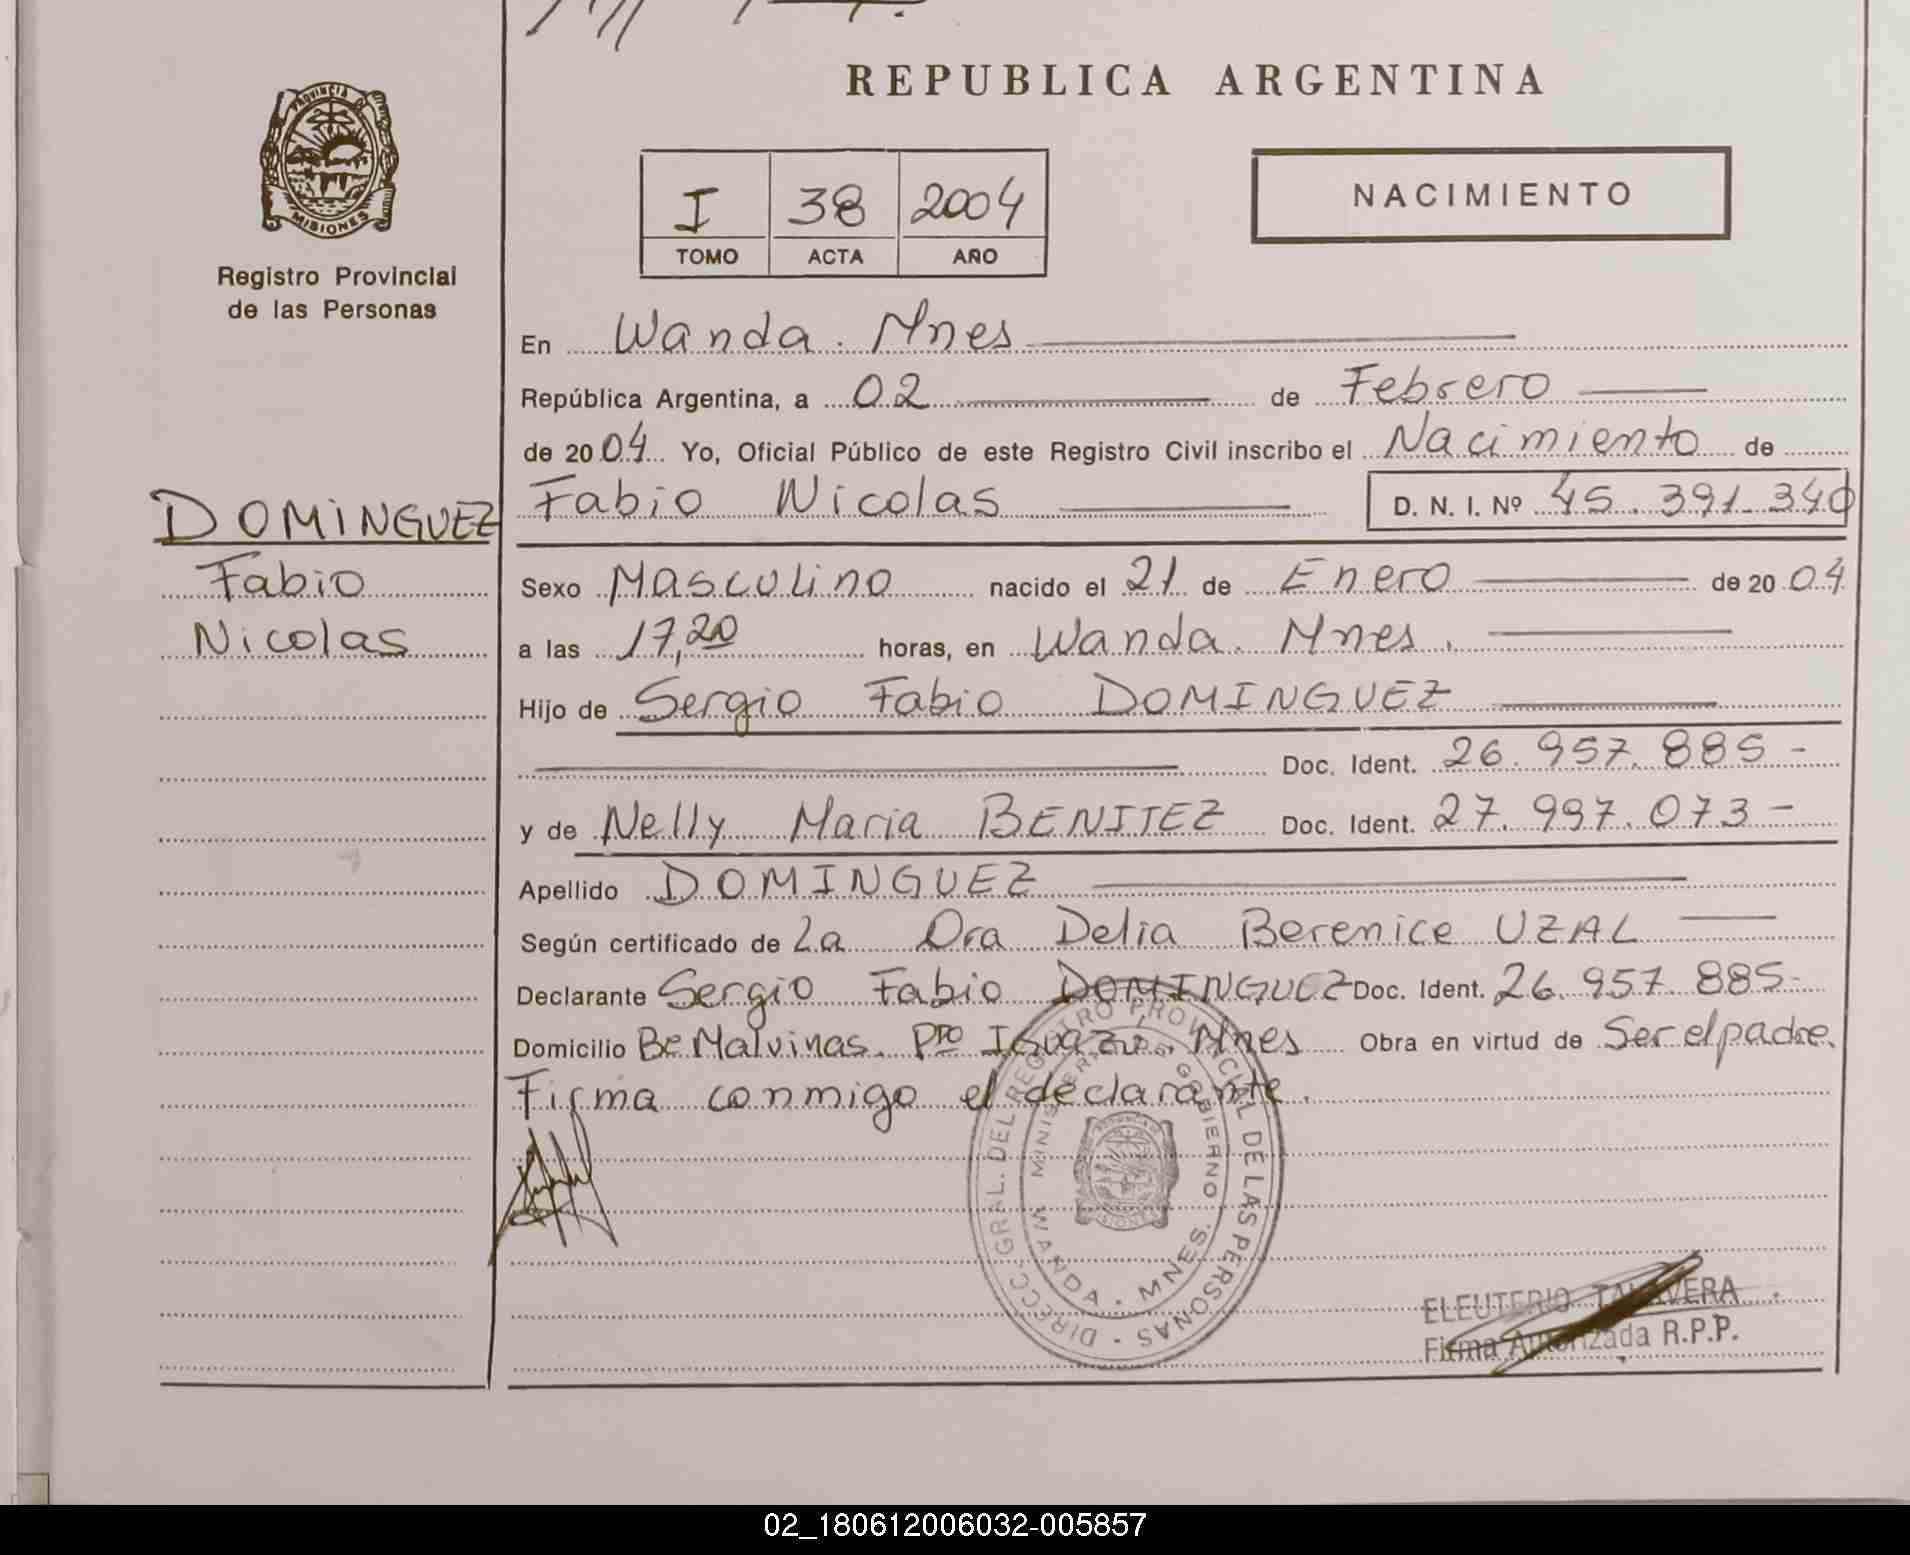 REPUBLICA ARGENTINA
PROVINCIA DE
MISIONES
Registro Provincial
de las Personas
I 38 2004
TOMO ACTA AÑO
NACIMIENTO
En Wanda. Mnes
República Argentina, a 02 de Febrero
de 2004 Yo, Oficial Público de este Registro Civil inscribo el Nacimiento de
Fabio Nicolas D. N. I. Nº 45.391.340
DOMINGUEZ
Fabio
Nicolas
Sexo Masculino nacido el 21 de Enero de 2004
a las 17,20 horas, en Wanda. Mnes.
Hijo de Sergio Fabio DOMINGUEZ
Doc. Ident. 26.957.885-
y de Nelly Maria BENITEZ Doc. Ident. 27.997.073-
Apellido DOMINGUEZ
Según certificado de La Dra Delia Berenice UZAL
Declarante Sergio Fabio DOMINGUEZ Doc. Ident. 26.957.885-
Domicilio Bº Malvinas. Pto Iguazu. Mnes Obra en virtud de Ser el padre.
Firma conmigo el declarante.
DIRECC. GRAL. DEL REGISTRO PROVINCIAL DE LAS PERSONAS
GOBIERNO
WANDA - MNES.
ELEUTERIO TALAVERA
Firma Autorizada R.P.P.
02_180612006032-005857